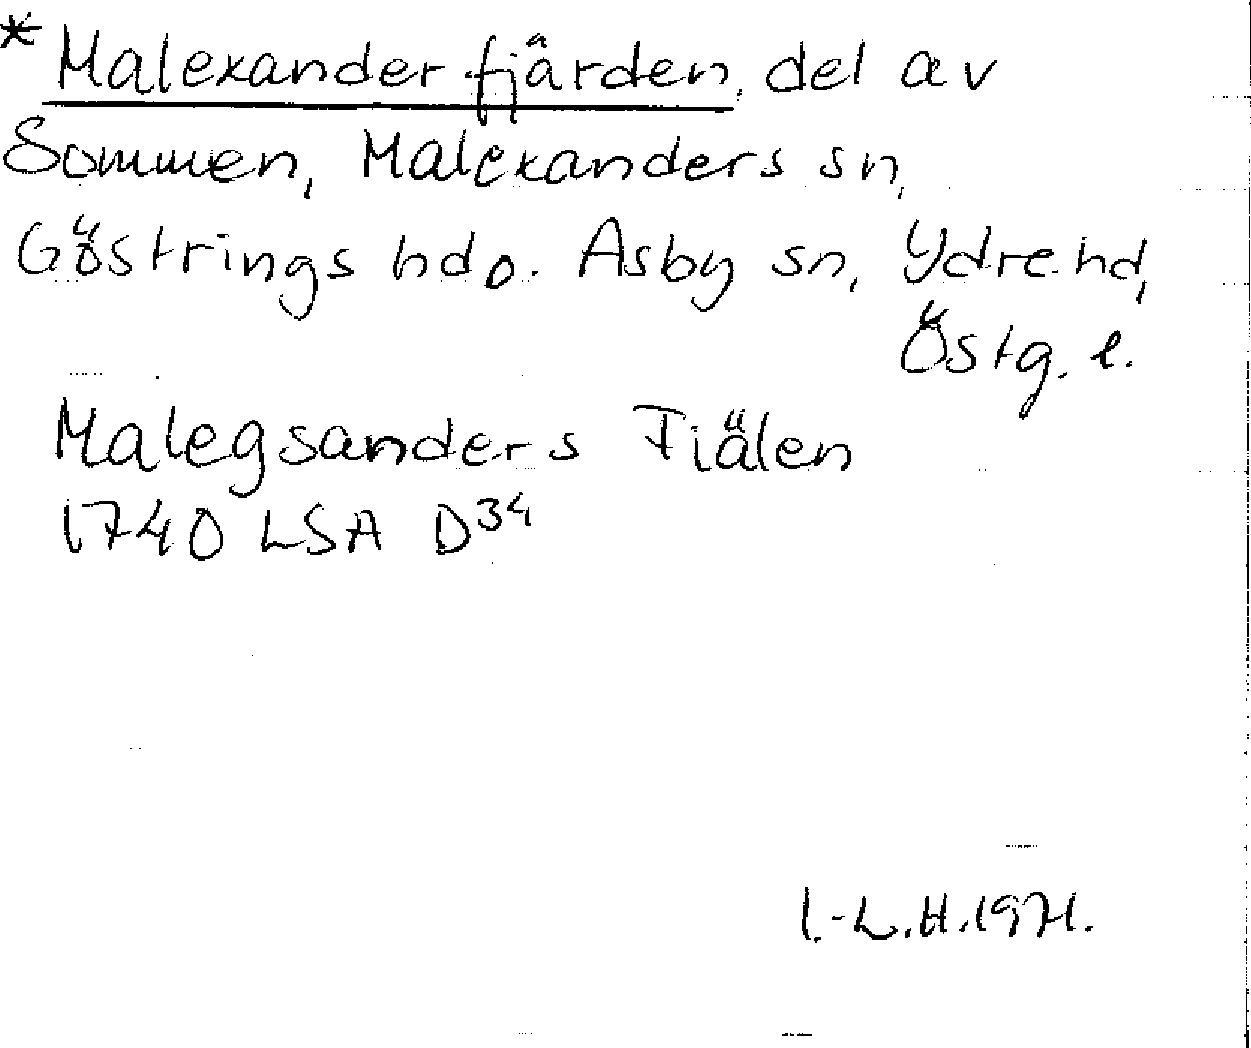 * Malexanderfjärden, del av
Sommen, Malexanders sn,
Göstrings hd o. Asby sn, Ydre hd,
Östg. l.
Malegsanders Fiälen
1740 LSA D34
I.-L.H. 1971.